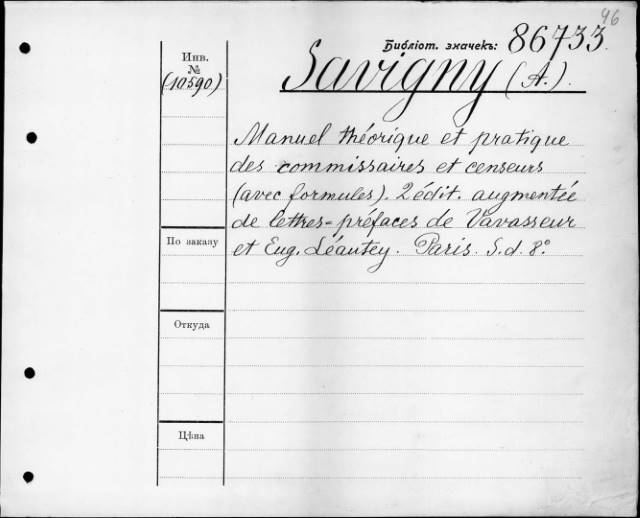 46
Библіот. значекъ: 86733.
Инв.
№
(10590)
Savigny (A.).
Manuel théorique et pratique
des commissaires et censeurs
(avec formules). 2 édit. augmentée
de lettres-préfaces de Vavasseur
et Eug. Léautey. Paris. S.d. 8°.
По заказу
Откуда
Цѣна